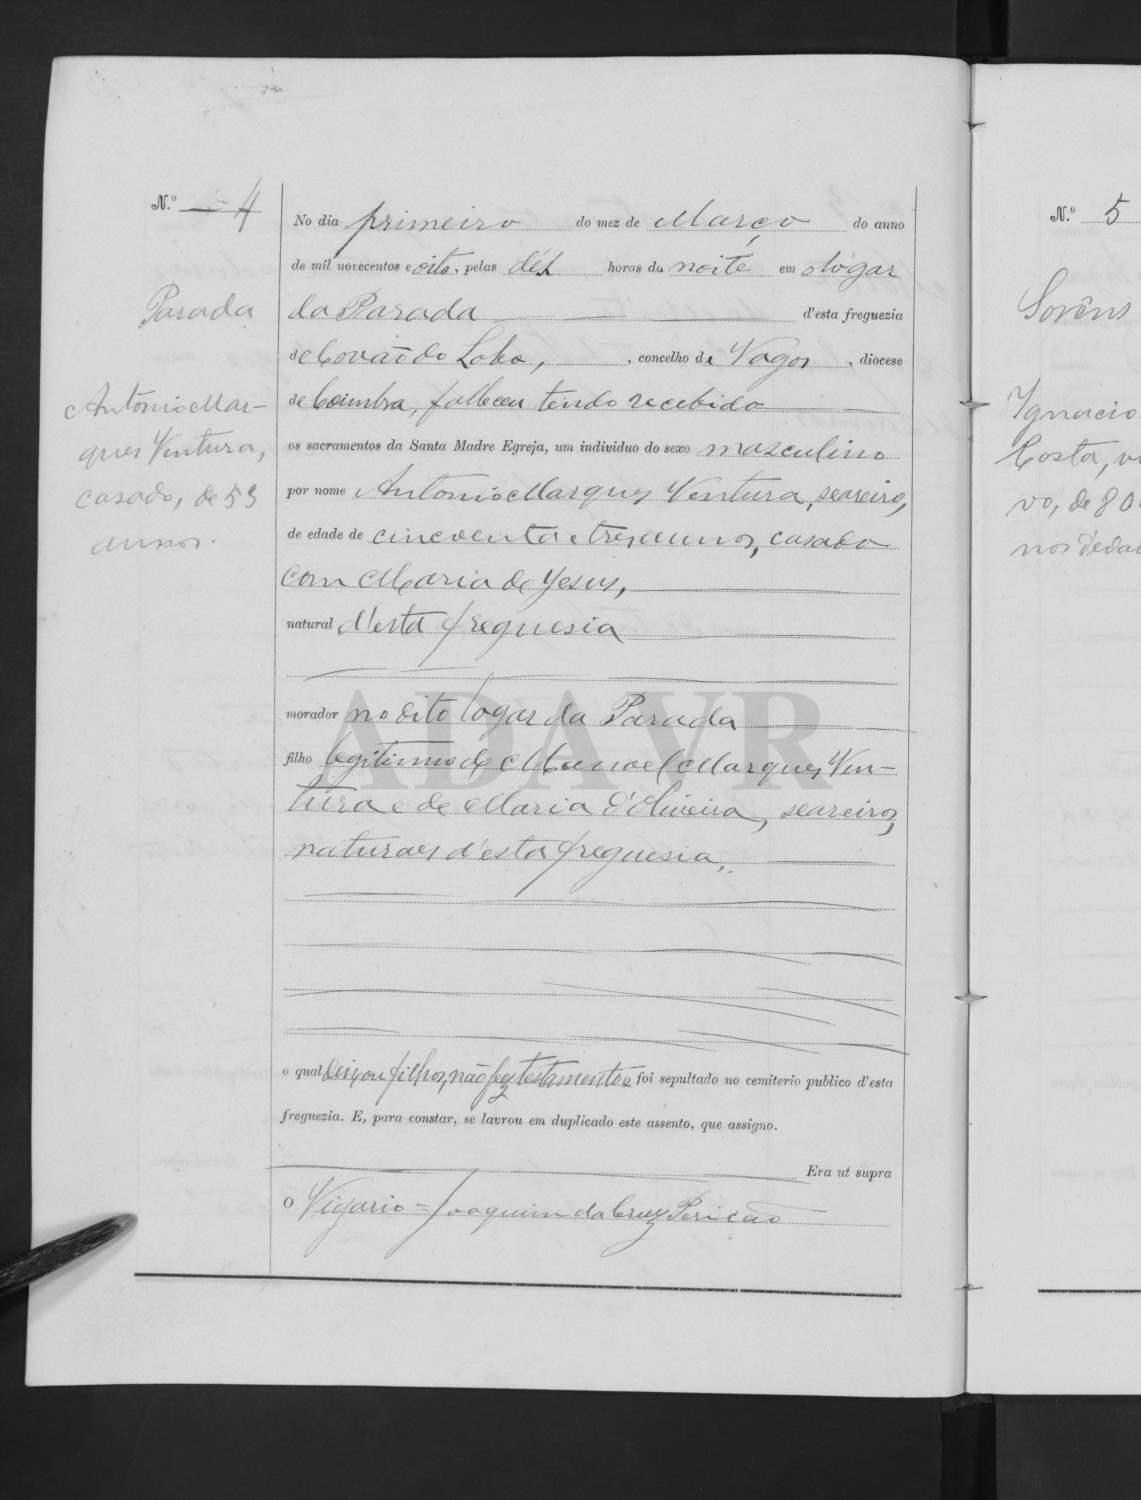 N.º 4
Parada
Antonio Mar-
ques Ventura,
casado, de 53
annos.
No dia primeiro do mez de Março do anno
de mil novecentos e oito, pelas déz horas da noite em o logar
da Parada d'esta freguezia
de Covão do Lobo, concelho de Vagos, diocese
de Coimbra, falleceu tendo recebido
os sacramentos da Santa Madre Egreja, um individuo do sexo masculino
por nome Antonio Marques Ventura, seareiro,
de edade de cincoenta e tres annos, casado
com Maria de Jesus,
natural d'esta freguesia
morador no dito logar da Parada
filho legitimo de Manoel Marques Ven-
tura e de Maria d'Oliveira, seareiros,
naturaes d'esta freguesia,
o qual deixou filhos, não fez testamento e foi sepultado no cemiterio publico d'esta
freguezia. E, para constar, se lavrou em duplicado este assento, que assigno.
Era ut supra
O Vigario = Joaquim da Cruz Pericão
ADAVR
N.º 5
Sorêns
Ignacio
Costa, vi
vo, de 80
nos d'eda